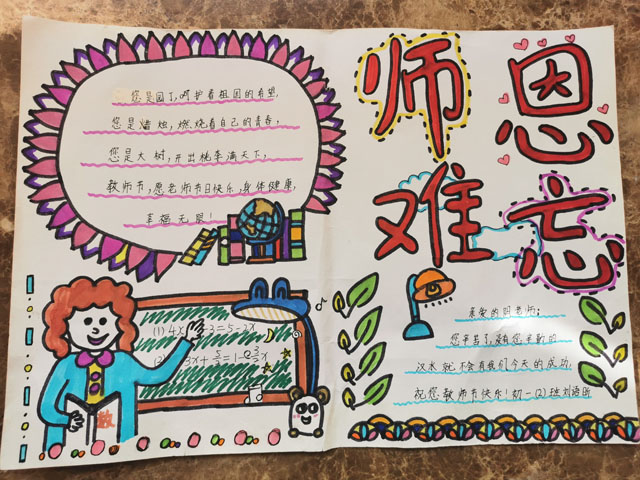 您是园丁,呵护着祖国的希望,
您是蜡烛,燃烧着自己的青春;
您是大树,开出桃李满天下,
教师节,愿老师节日快乐,身体健康,
幸福无限!
师恩
难忘
(1) 4x-3=5-2x
教
亲爱的田老师:
您辛苦了,没有您辛勤的
汶水就不会有我们今天的成功,
祝您教师节快乐!初一(2)班刘语